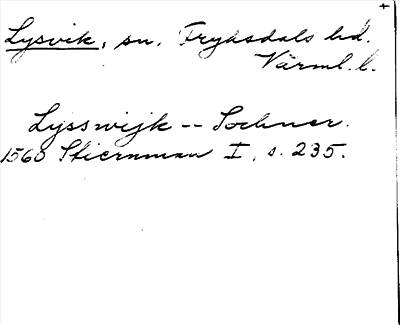 Lysvik, sn. Fryksdals hd.
Värml. l.
Lysswijk -- Sochner.
1568 Stiernman I, s. 235.